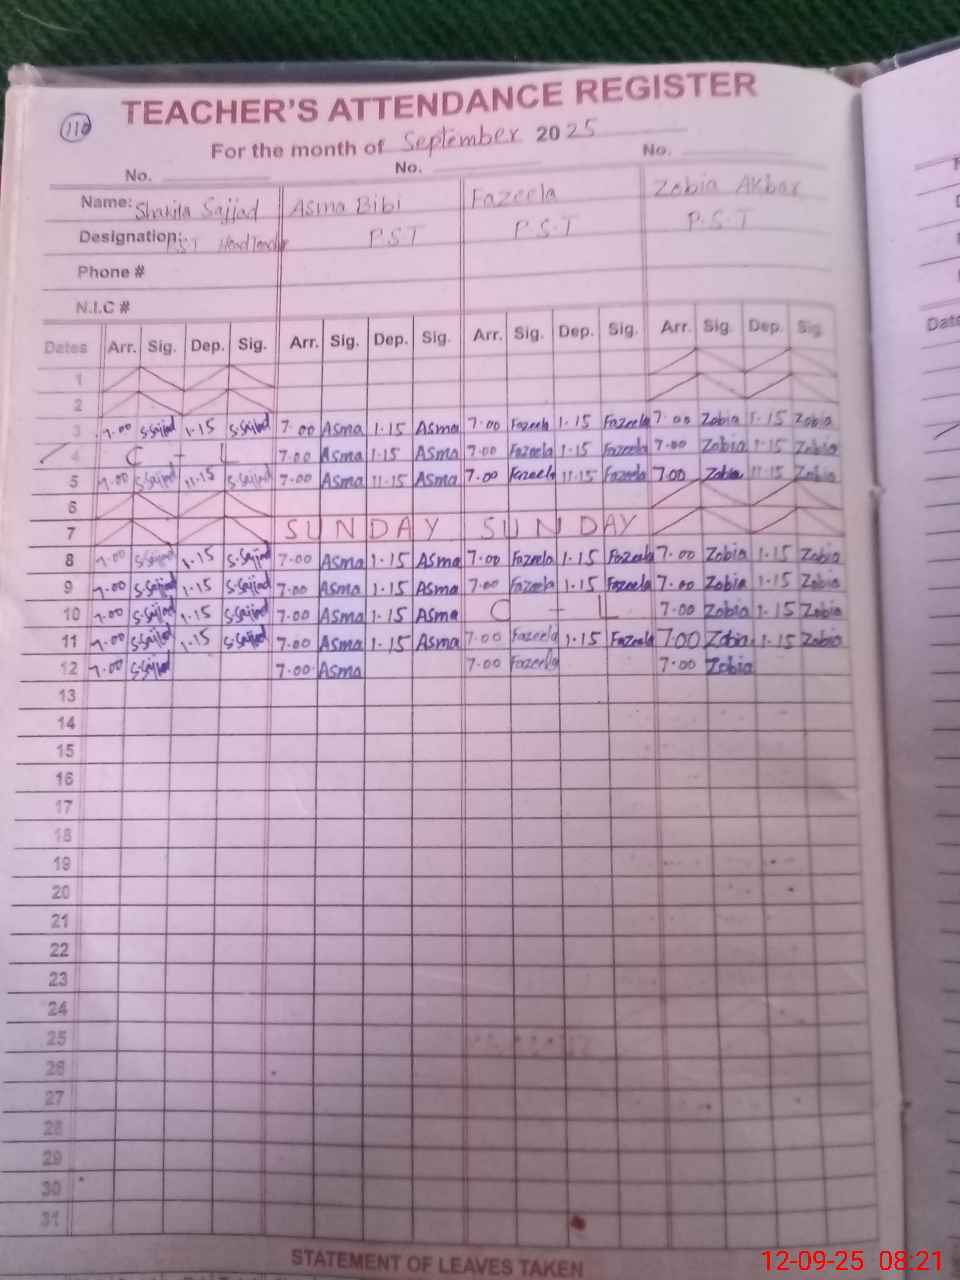 110
TEACHER'S ATTENDANCE REGISTER
For the month of September 2025
No. No. No.
Name: Shakila Sajjad Asma Bibi Fazeela Zobia Akbar
Designation: PST Head Teacher P.S.T P.S.T P.S.T
Phone #
N.I.C #
Dates Arr. Sig. Dep. Sig. Arr. Sig. Dep. Sig. Arr. Sig. Dep. Sig. Arr. Sig. Dep. Sig.
1
2
3 7.00 S.Sajjad 1.15 S.Sajjad 7.00 Asma 1.15 Asma 7.00 Fazeela 1.15 Fazeela 7.00 Zobia 1.15 Zobia
4 C - L 7.00 Asma 1.15 Asma 7.00 Fazeela 1.15 Fazeela 7.00 Zobia 1.15 Zobia
5 7.00 S.Sajjad 11.15 S.Sajjad 7.00 Asma 11.15 Asma 7.00 Fazeela 11.15 Fazeela 7.00 Zobia 11.15 Zobia
6
7 SUNDAY SUNDAY
8 7.00 S.Sajjad 1.15 S.Sajjad 7.00 Asma 1.15 Asma 7.00 Fazeela 1.15 Fazeela 7.00 Zobia 1.15 Zobia
9 7.00 S.Sajjad 1.15 S.Sajjad 7.00 Asma 1.15 Asma 7.00 Fazeela 1.15 Fazeela 7.00 Zobia 1.15 Zobia
10 7.00 S.Sajjad 1.15 S.Sajjad 7.00 Asma 1.15 Asma C - L 7.00 Zobia 1.15 Zobia
11 7.00 S.Sajjad 1.15 S.Sajjad 7.00 Asma 1.15 Asma 7.00 Fazeela 1.15 Fazeela 7.00 Zobia 1.15 Zobia
12 7.00 S.Sajjad 7.00 Asma 7.00 Fazeela 7.00 Zobia
13
14
15
16
17
18
19
20
21
22
23
24
25
26
27
28
29
30
31
STATEMENT OF LEAVES TAKEN
12-09-25 08:21
Date